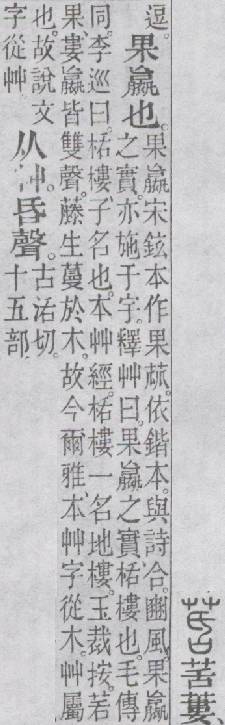 䒷苦蔞、
逗。果蠃也。果蠃宋鉉本作果蓏。依鍇本。與詩合。豳風。果蠃
之實。亦施于宇。釋艸曰。果蠃之實栝樓也。毛傳
同。李巡曰。栝樓子名也。本艸經。栝樓一名地樓。玉裁按。苦
果、婁蠃皆雙聲。藤生蔓於木。故今爾雅、本艸字從木。艸屬
也。故說文
字從艸
从艸。昏聲。古活切。
十五部